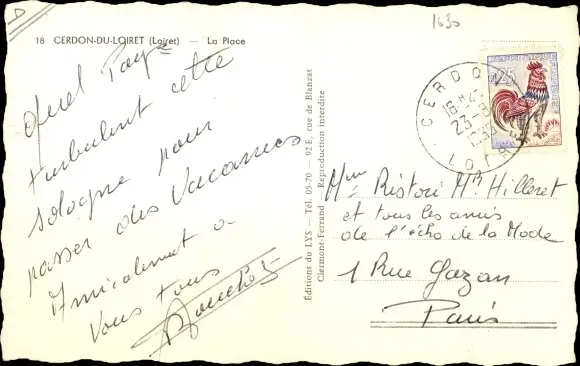 1630
18 CERDON-DU-LOIRET (Loiret) — La Place
Quel Pays
turbulent cette
Sologne pour
passer des Vacances
Amicalement à
Vous tous
Éditions du LYS — Tél. 05-70 — 92 E, rue de Blanzat
Clermont-Ferrand — Reproduction interdite
0,25
CERDON
16 H
23-8
LOIRET
Mme Ristori Mr Hilleret
et tous les amis
de l'écho de la Mode
1 Rue Gazan
Paris